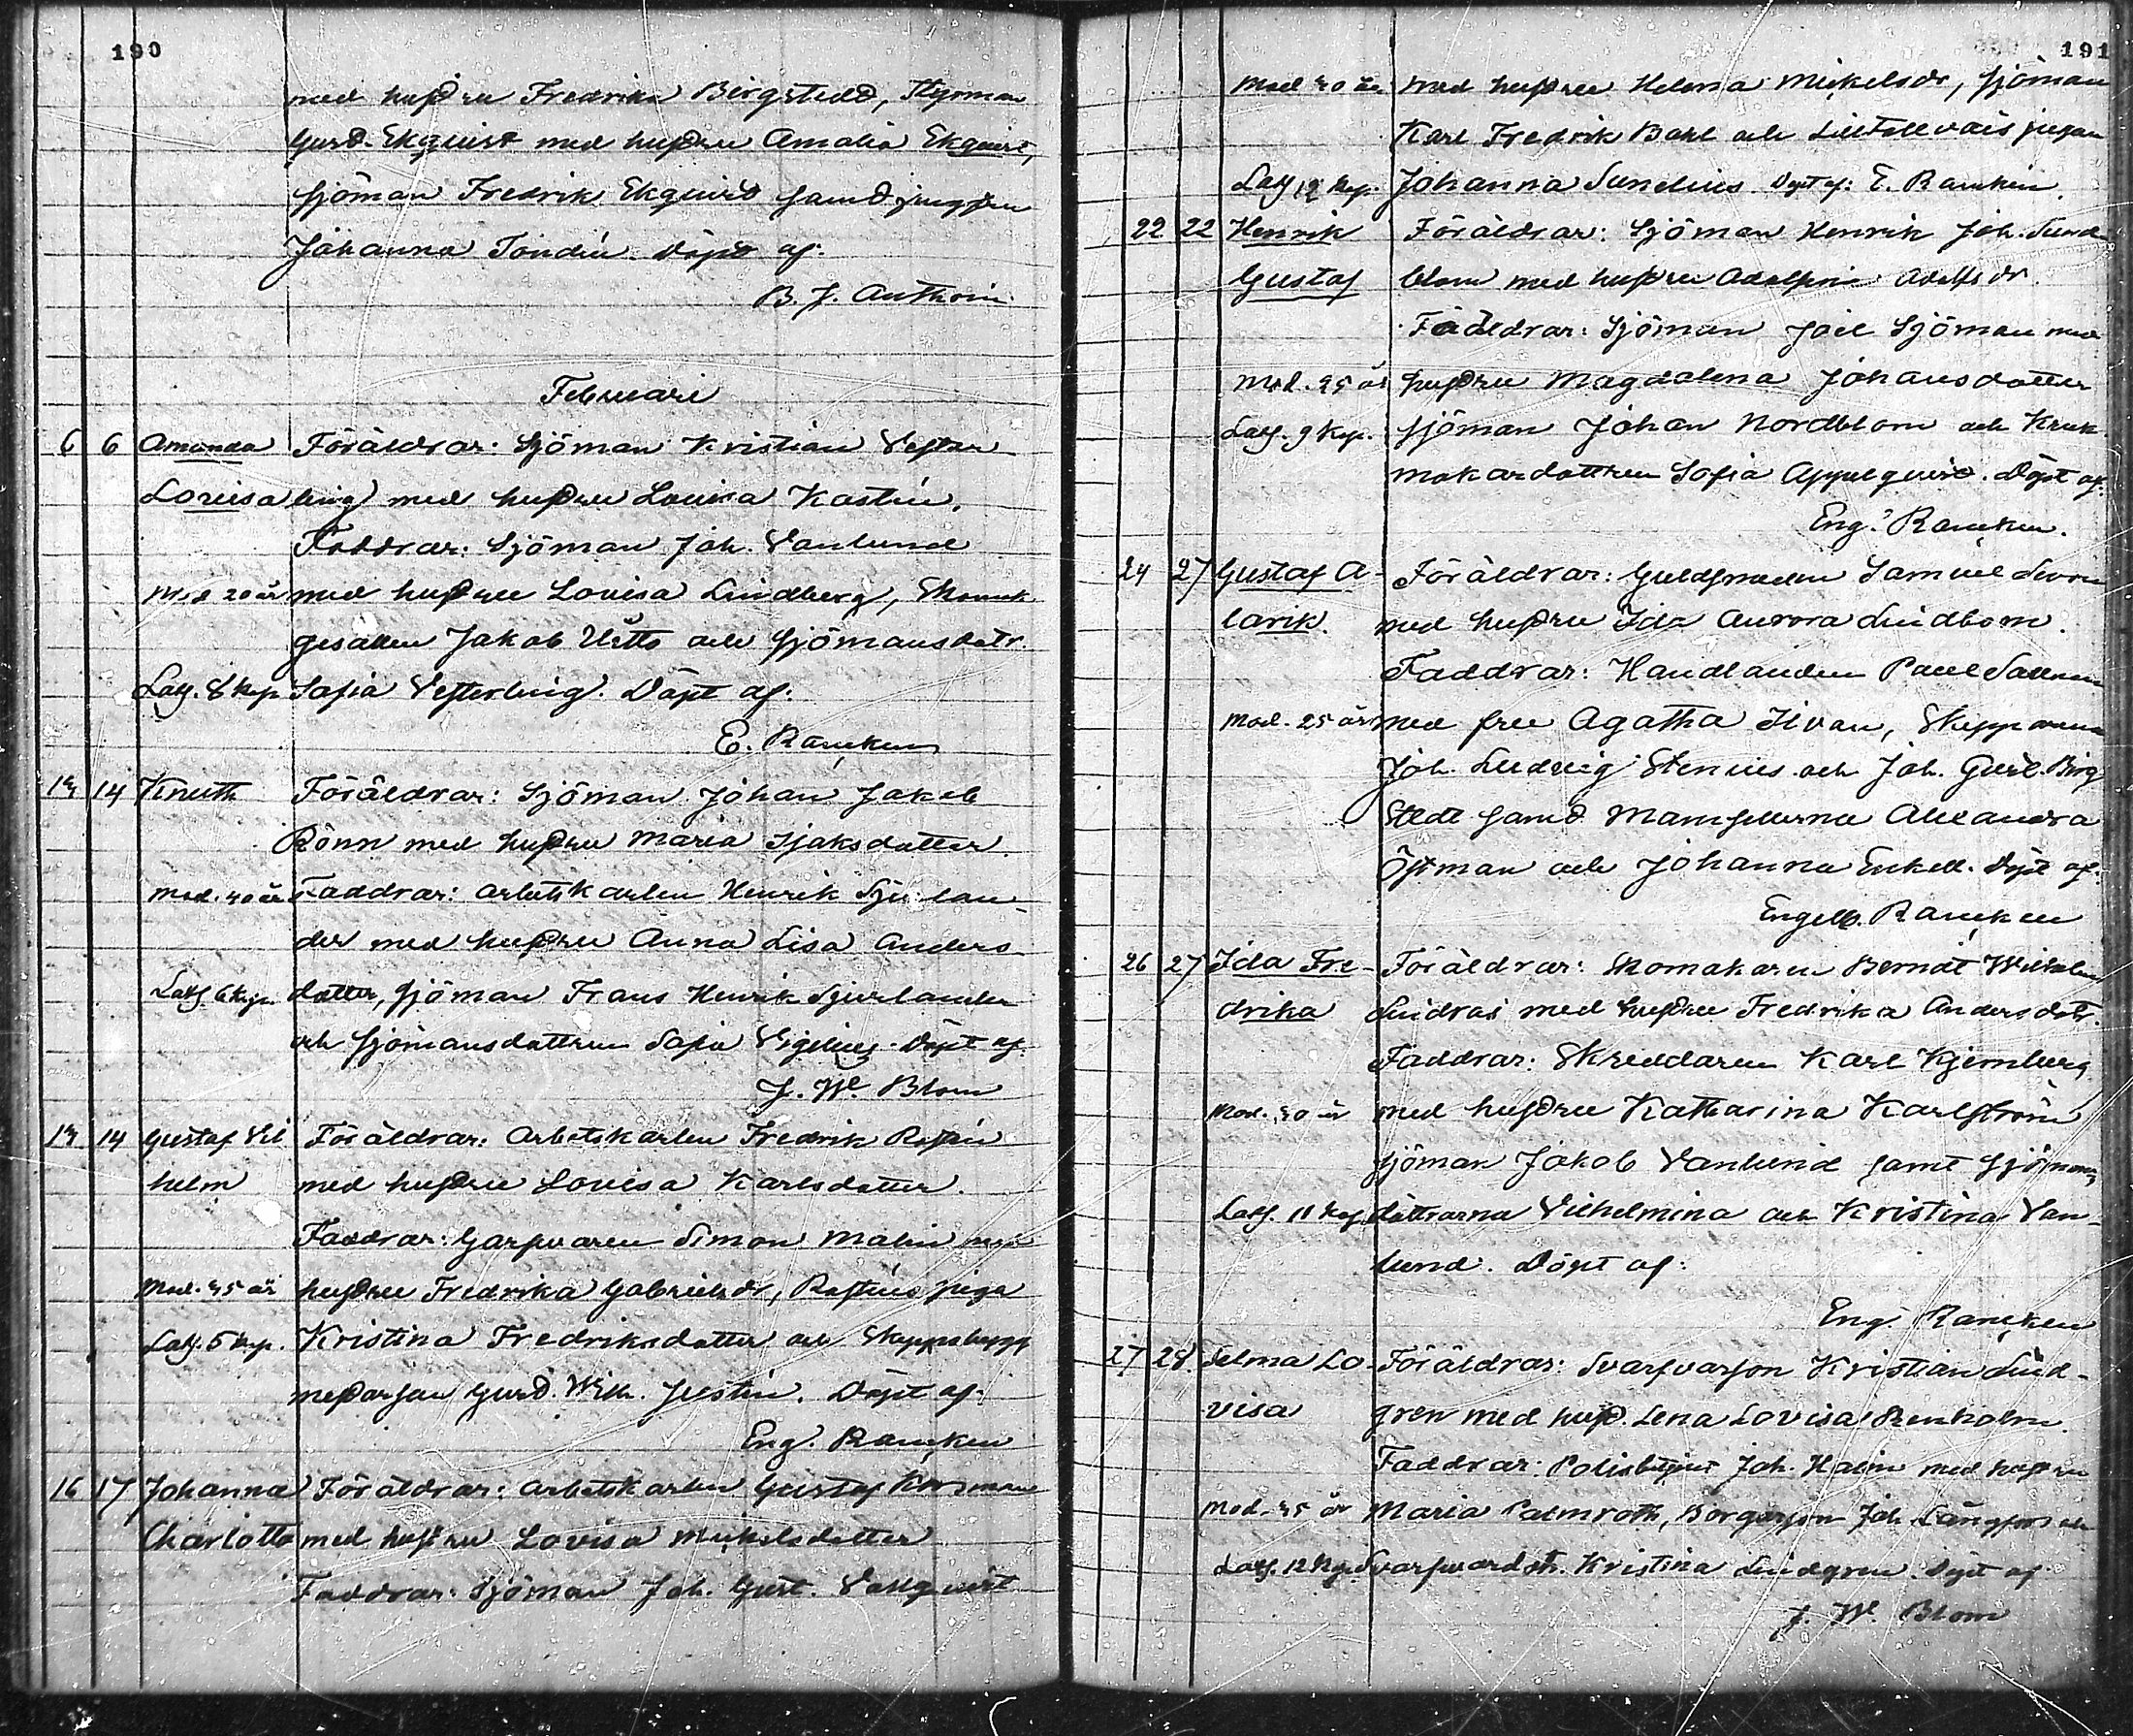 190
med hustru Fredrika Bergstedt, Styrman
Gust. Ekquist med hustru Amalia Ekquist,
sjöman Fredrik Ekquist samt jungfrun
Johanna Tondin. Döpt af:
B. J. Anthoni
Februari
6 6 Amanda Föräldrar: Sjöman Kristian Vester
Lovisa ling med hustru Lovisa Kastin.
Faddrar: Sjöman Joh. Vanlund
Mod 20 år med hustru Lovisa Lindberg, Skomak.
gesällen Jakob Utto och Sjömansdotr.
Lösf. 8 kop. Sofia Vesterling. Döpt af:
E. Rancken
14 Knuth Föräldrar: Sjöman Johan Jakob
Rönn med hustru Maria Isaksdotter.
Mod. 40 år Faddrar: arbetskarlen Henrik Sju lan-
der med hustru Anna Lisa Anders
6 kop. dotter, sjöman Frans Henrik Sjurlander
och sjömansdottren Sofia Vigilius. Döpt af:
J. W. Blom
14 Gustaf Vil Föräldrar: Arbetskarlen Fredrik Rostin
helm med hustru Lovisa Karlsdotter.
Faddrar: Garfvaren Simon Malin med
Mod. 35 år hustru Fredrika Gabrielsdr, Rostins piga
5 kop. Kristina Fredriksdotter och Skeppsbygg
mästarson Gust. Wilh. Justin. Döpt af:
Eng. Rancken
16 17 Johanna Föräldrar: Arbetskarlen Gustaf
Charlotta med hustru Lovisa Mickelsdotter
Faddrar: Sjöman Joh. Gust. Vallquist
191
Mod 40 år med hustru Helena Mickelsdr, sjöman
Karl Fredrik Bahl och pigan
kop. Johanna Sunelius. Döpt af: E. Rancken.
22 22 Henrik Föräldrar: Sjöman Henrik Joh. Sund
Gustaf blom med hustru Adolfina Adolfsdr.
Faddrar: Sjöman Joel Sjöman med
Mod. 25 år hustru Magdalena Johansdotter
9 kop. sjöman Johan Nordblom och Kruk
makardottren Sofia Appelquist. Döpt af:
Eng. Rancken.
24 27 Gustaf A- Föräldrar: Guldsmeden Samuel
larik. med hustru Ida Aurora Lindbom.
Faddrar: Handlanden Paul
Mod. 25 år med fru Agatha Sivan, Skepparena
Joh. Ludvig Stenius och Joh. Gust. Berg
stedt samt Mamsellerna Alexandra
Östman och Johanna Enkell. Döpt af:
Engelb. Rancken
26 27 Ida Fre- Föräldrar: Skomakaren Berndt Wilhelm
drika Lindros med hustru Fredrika Andersdotr.
Faddrar: Skreddaren Karl Kjernberg
Mod. 30 år med hustru Katharina Karlström
sjöman Jakob Vanlund samt sjömans
11 kop. döttrarna Vilhelmina och Kristina Van-
lund. Döpt af:
Eng. Rancken
27 28 Selma Lo- Föräldrar: Svarfvarson Kristian Lind-
visa gren med hust. Lena Lovisa Renholm.
Faddrar: Joh. Malm med hustru
Mod. 35 år Maria Palmroth, Borgarson Joh. Långfors och
12 kop. Svarfvardotr. Kristina Lindgren. Döpt af
J. W. Blom